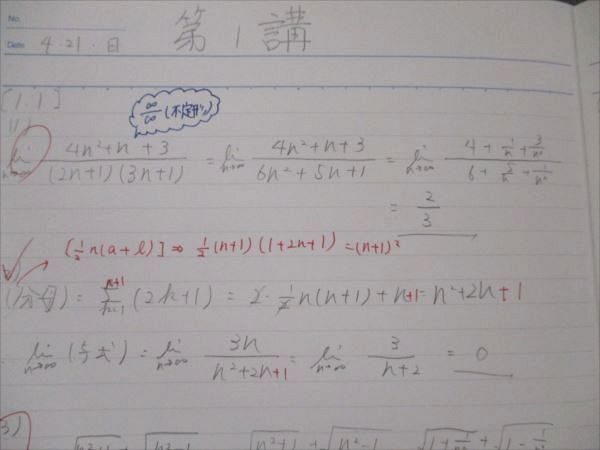 No.
Date 4・21・日
第1講
[1.1]
∞/∞ (不定形)
lim n→∞ (4n²+n+3)/((2n+1)(3n+1)) = lim n→∞ (4n²+n+3)/(6n²+5n+1) = lim n→∞ (4+1/n+3/n²)/(6+5/n+1/n²)
= 2/3
[½n(a+l)] ⇒ ½(n+1)(1+2n+1)=(n+1)²
(分母) = Σ k=1 n+1 (2k+1) = 2・½n(n+1)+n+1= n²+2n+1
lim n→∞ (与式) = lim n→∞ 3n/(n²+2n+1) = lim n→∞ 3/(n+2) = 0
3)